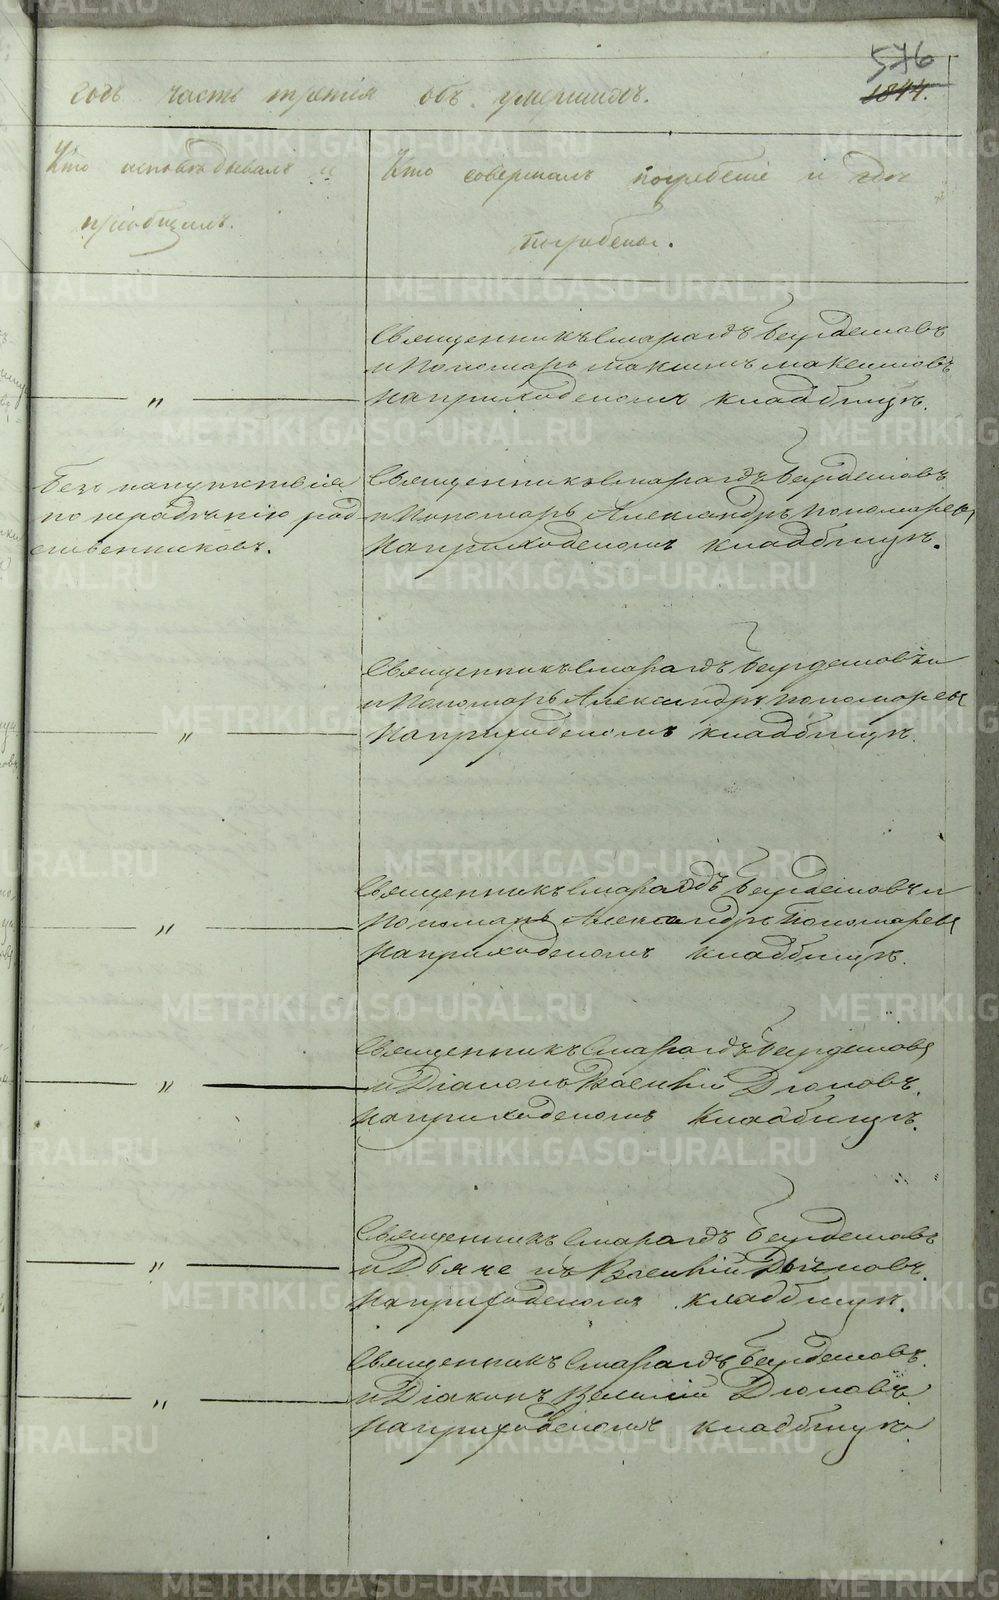 576
1844.
годъ часть третія объ умершихъ.
Кто исповѣдывалъ и
пріобщилъ.
Кто совершалъ погребеніе и гдѣ
погребены.
Священникъ Смарагдъ Бурдашовъ
и Пономарь Максимъ Максимовъ
на приходскомъ кладбищѣ.
„
Безъ напутствія
по нерадѣнію род
ственниковъ.
Священникъ Смарагдъ
и Пономарь Александръ Пономаревъ
на приходскомъ кладбищѣ.
Священникъ Смарагдъ
и Пономарь Александръ Пономаревъ
на приходскомъ кладбищѣ.
„
Священникъ Смарагдъ
Пономарь Александръ Пономаревъ
на приходскомъ кладбищѣ.
„
Священникъ Смарагдъ
и Діаконъ Василій
на приходскомъ кладбищѣ.
„
Священникъ Смарагдъ
и Василій
на приходскомъ кладбищѣ.
„
Священникъ Смарагдъ
и Діаконъ Василій
на приходскомъ кладбищѣ.
„
METRIKI.GASO-URAL.RU